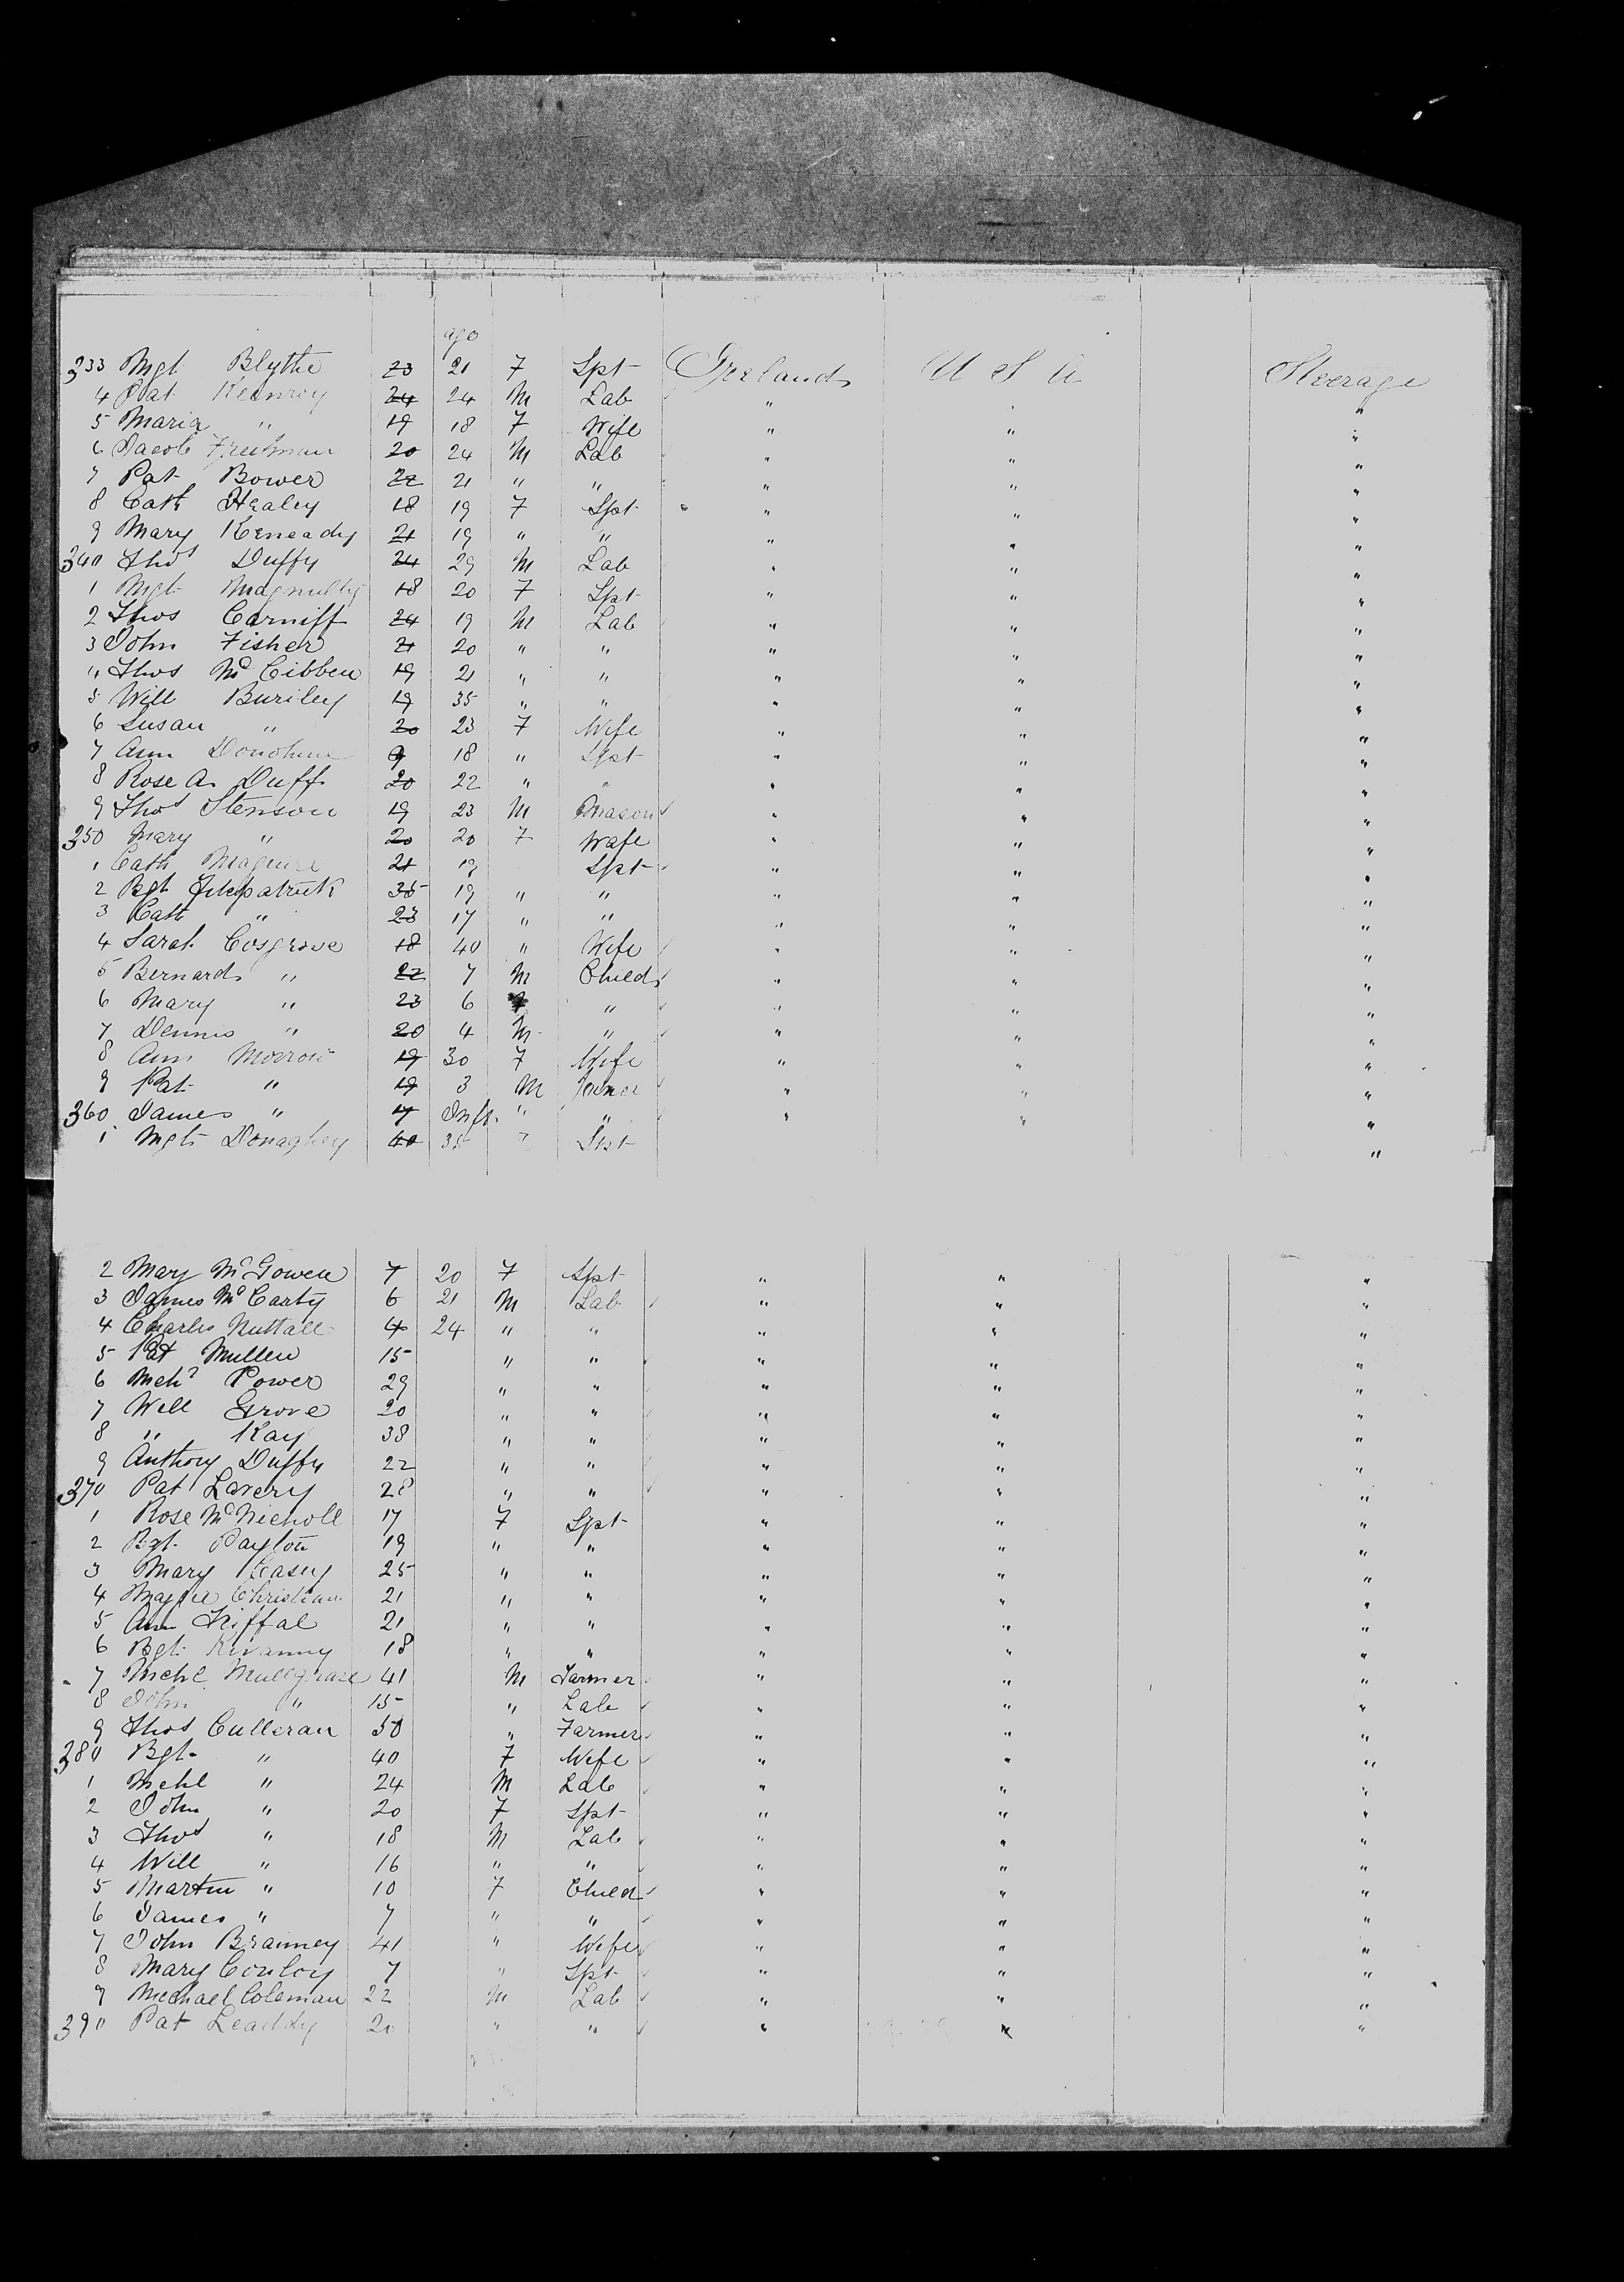 age
333 Mgt Blythe 23 21 F Spt Ireland U S A Steerage
4 Pat 24 24 M Lab " " "
5 Maria " 19 18 F Wife " " "
6 Jacob Freehman 20 24 M Lab " " "
7 Pat Bower 22 21 " " " " "
8 Cath Healey 18 19 F Spt " " "
9 Mary Keneady 21 19 " " " " "
340 Thos Duffy 24 29 M Lab " " "
1 Mgt 18 20 F Spt " " "
2 Thos Carniff 24 19 M Lab " " "
3 John Fisher 21 20 " " " " "
" Thos McCibben 19 21 " " " " "
5 Will Buriley 19 35 " " " " "
6 Susan " 20 23 F Wife " " "
7 Ann Donohue 9 18 " Spt " " "
8 Rose A. Duff 20 22 " " " " "
9 Thos Stenson 19 23 M Mason " " "
350 Mary " 20 20 F Wafe " " "
1 Cath Maguire 21 19 Spt " " "
2 Bgt Fitzpatrick 35 19 " " " " "
3 Cath " 23 17 " " " " "
4 Sarah Cosgrove 18 40 " Wife " " "
5 Bernard " 22 7 M Child " " "
6 Mary " 23 6 F " " " "
7 Dennis " 20 4 M " " " "
8 Ann Morrow 19 30 F Wife " " "
9 Pat " 19 3 M " " "
360 James " 17 Inft " " " " "
1 Mgt Donaghey 40 35 F Spt "
2 Mary McGowen 7 20 F Spt " " "
3 James McCarty 6 21 M Lab " " "
4 Charles Nuttall 4 24 " " " " "
5 Pat Mullen 15 " " " " "
6 Mchl Power 29 " " " " "
7 Will Grove 20 " " " " "
8 " Kay 38 " " " " "
9 Anthony Duffy 22 " " " " "
370 Pat Lavery 28 " " " " "
1 Rose McNicholl 17 F Spt " " "
2 Bgt Payton 19 " " " " "
3 Mary Casey 25 " " " " "
4 Maggie Christian 21 " " " " "
5 Ann 21 " " " " "
6 Bgt 18 " " " " "
7 Michl 41 M Farmer " " "
8 John " 15 " Lab " " "
9 Thos Culleran 50 " Farmer " " "
380 Bgt " 40 F Wife " " "
1 Mchl " 24 M Lab " " "
2 John " 20 F Spt " " "
3 Thos " 18 M Lab " " "
4 Will " 16 " " " " "
5 Martin " 10 F Child " " "
6 James " 7 " " " " "
7 John Branney 41 " Wife " " "
8 Mary Conloy 7 " Spt " " "
9 Michael Coleman 22 M Lab " " "
390 Pat Leaddy 20 " " " " "